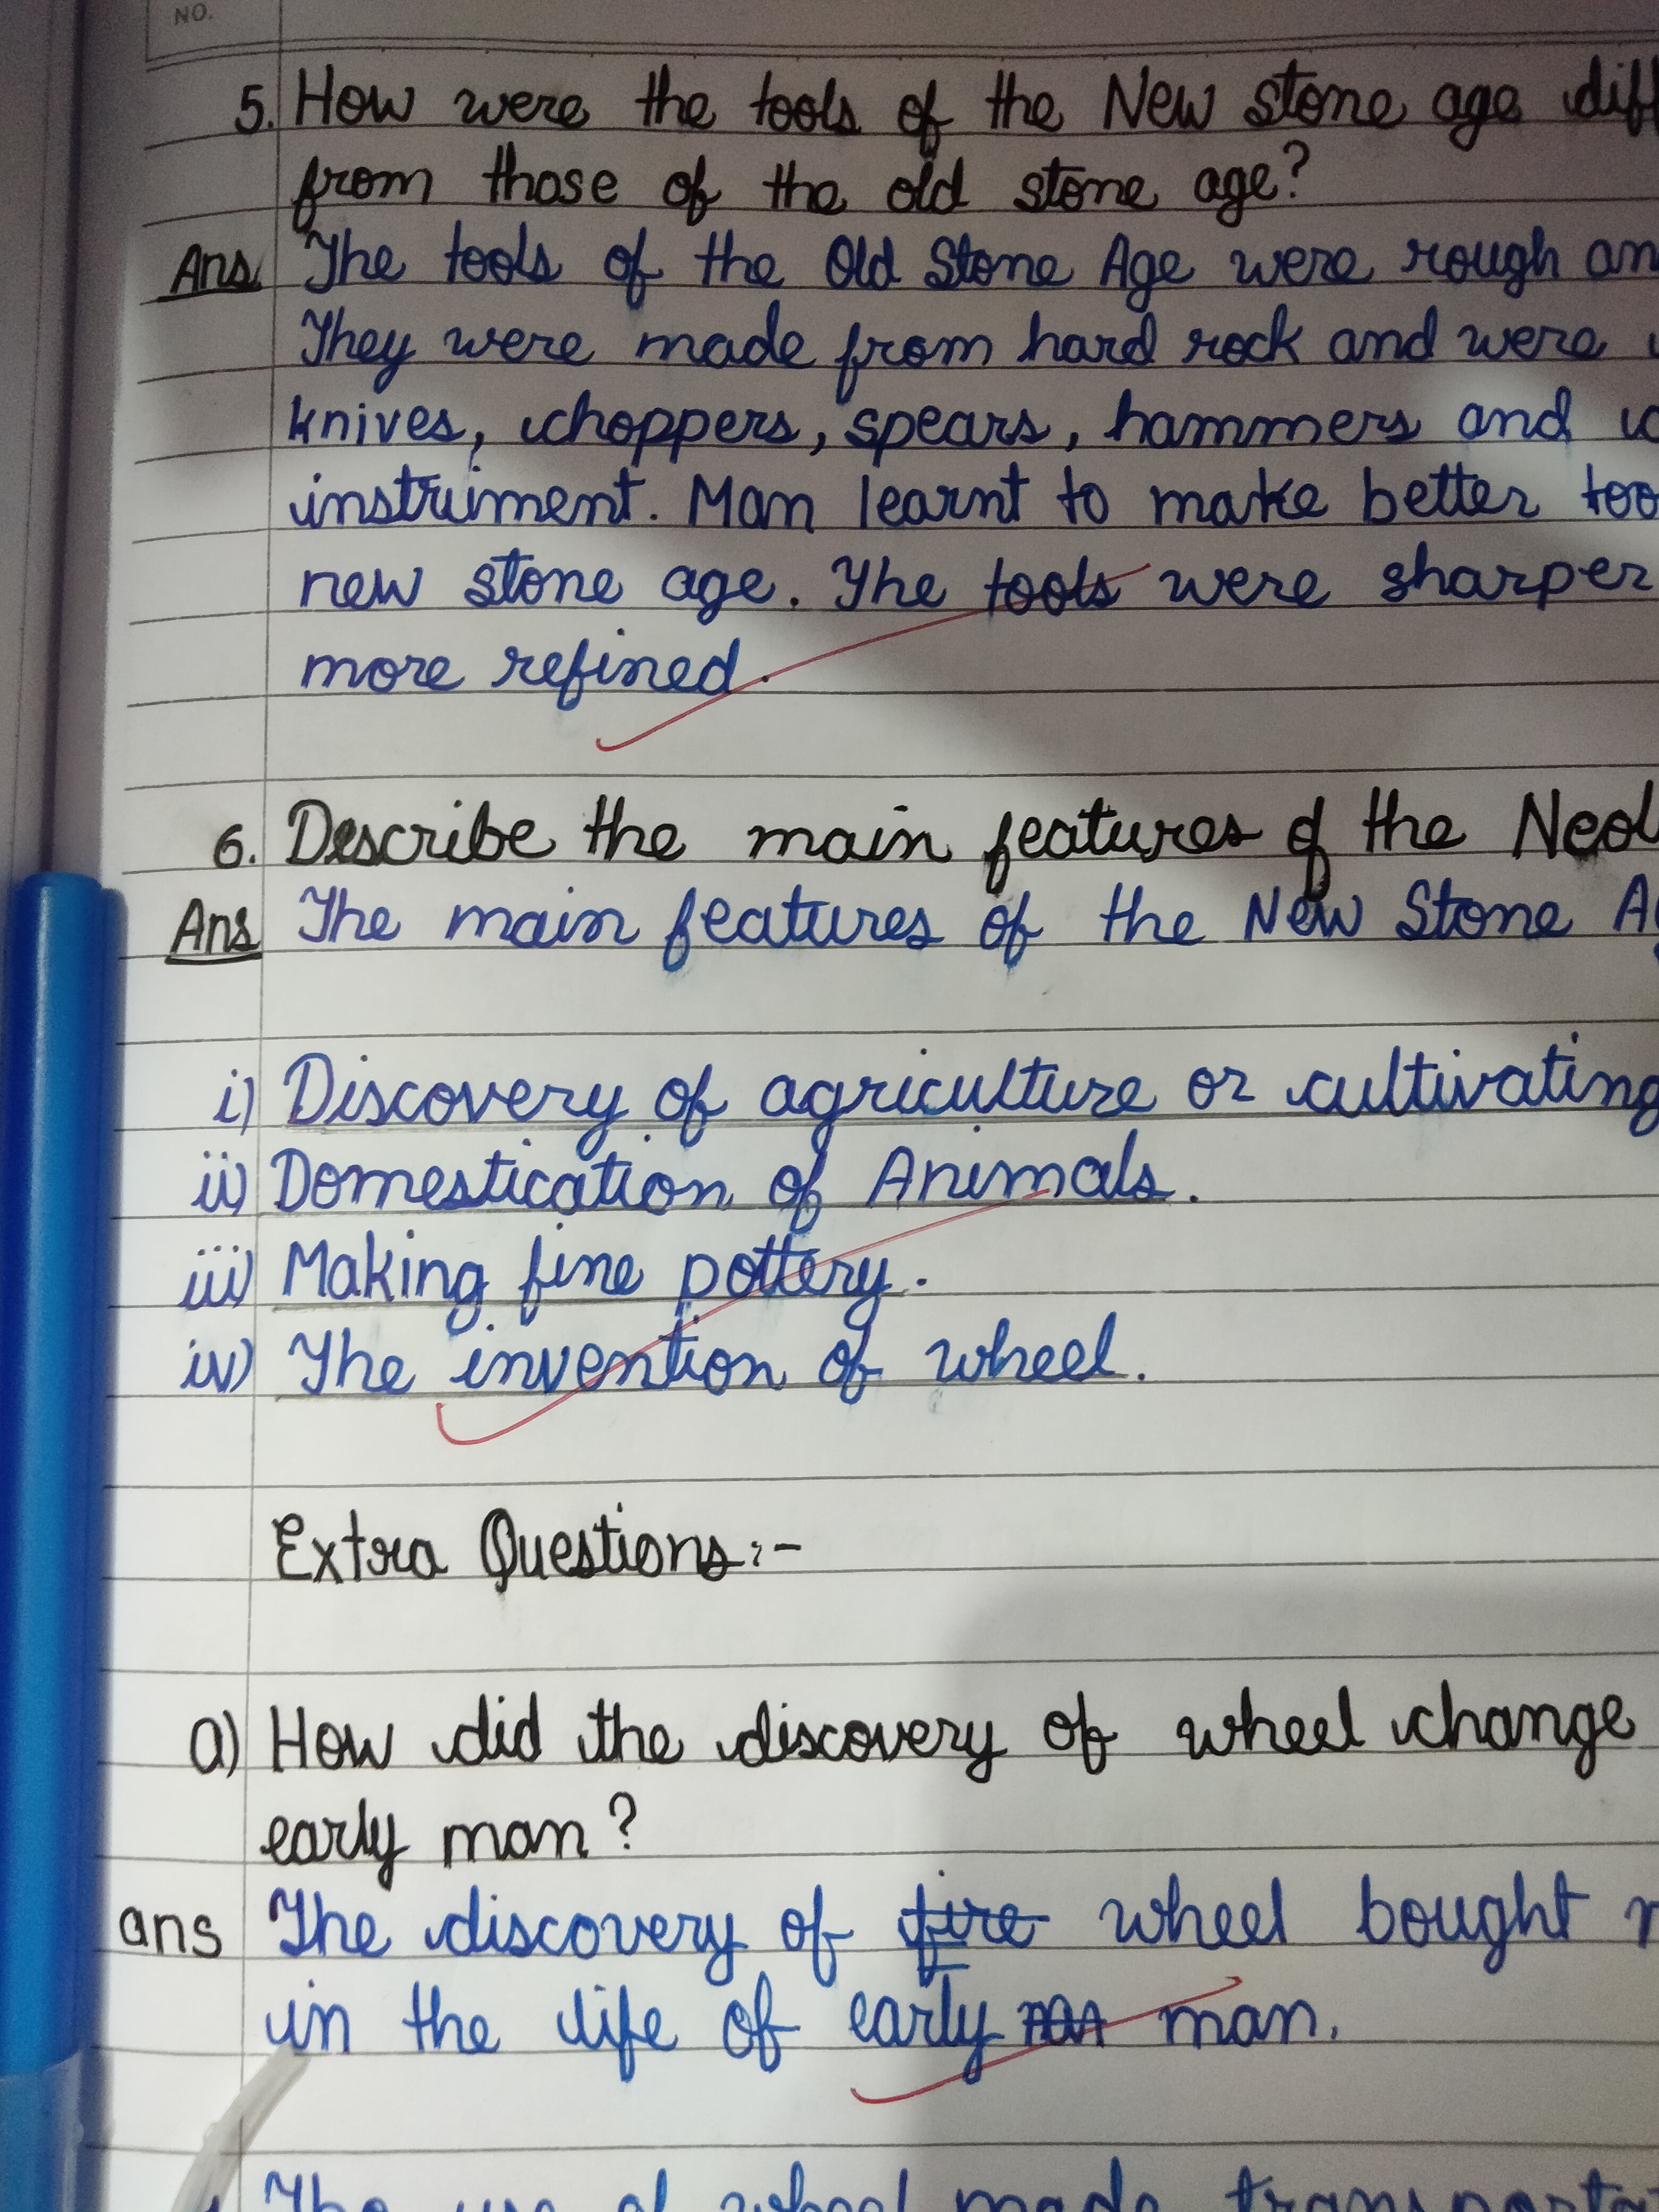 NO.
5. How were the tools of the New stone age diff
from those of the old stone age?
Ans The tools of the Old Stone Age were rough an
They were made from hard rock and were
knives, choppers, spears, hammers and
instrument. Man learnt to make better too
new stone age. The tools were sharper
more refined.
6. Describe the main features of the Neol
Ans The main features of the New Stone A
i) Discovery of agriculture or cultivating
ii) Domestication of Animals.
iii) Making fine pottery.
iv) The invention of wheel.
Extra Questions:-
a) How did the discovery of wheel change
early man?
ans The discovery of fire wheel bought
in the life of early man.
The use of wheel made transporta